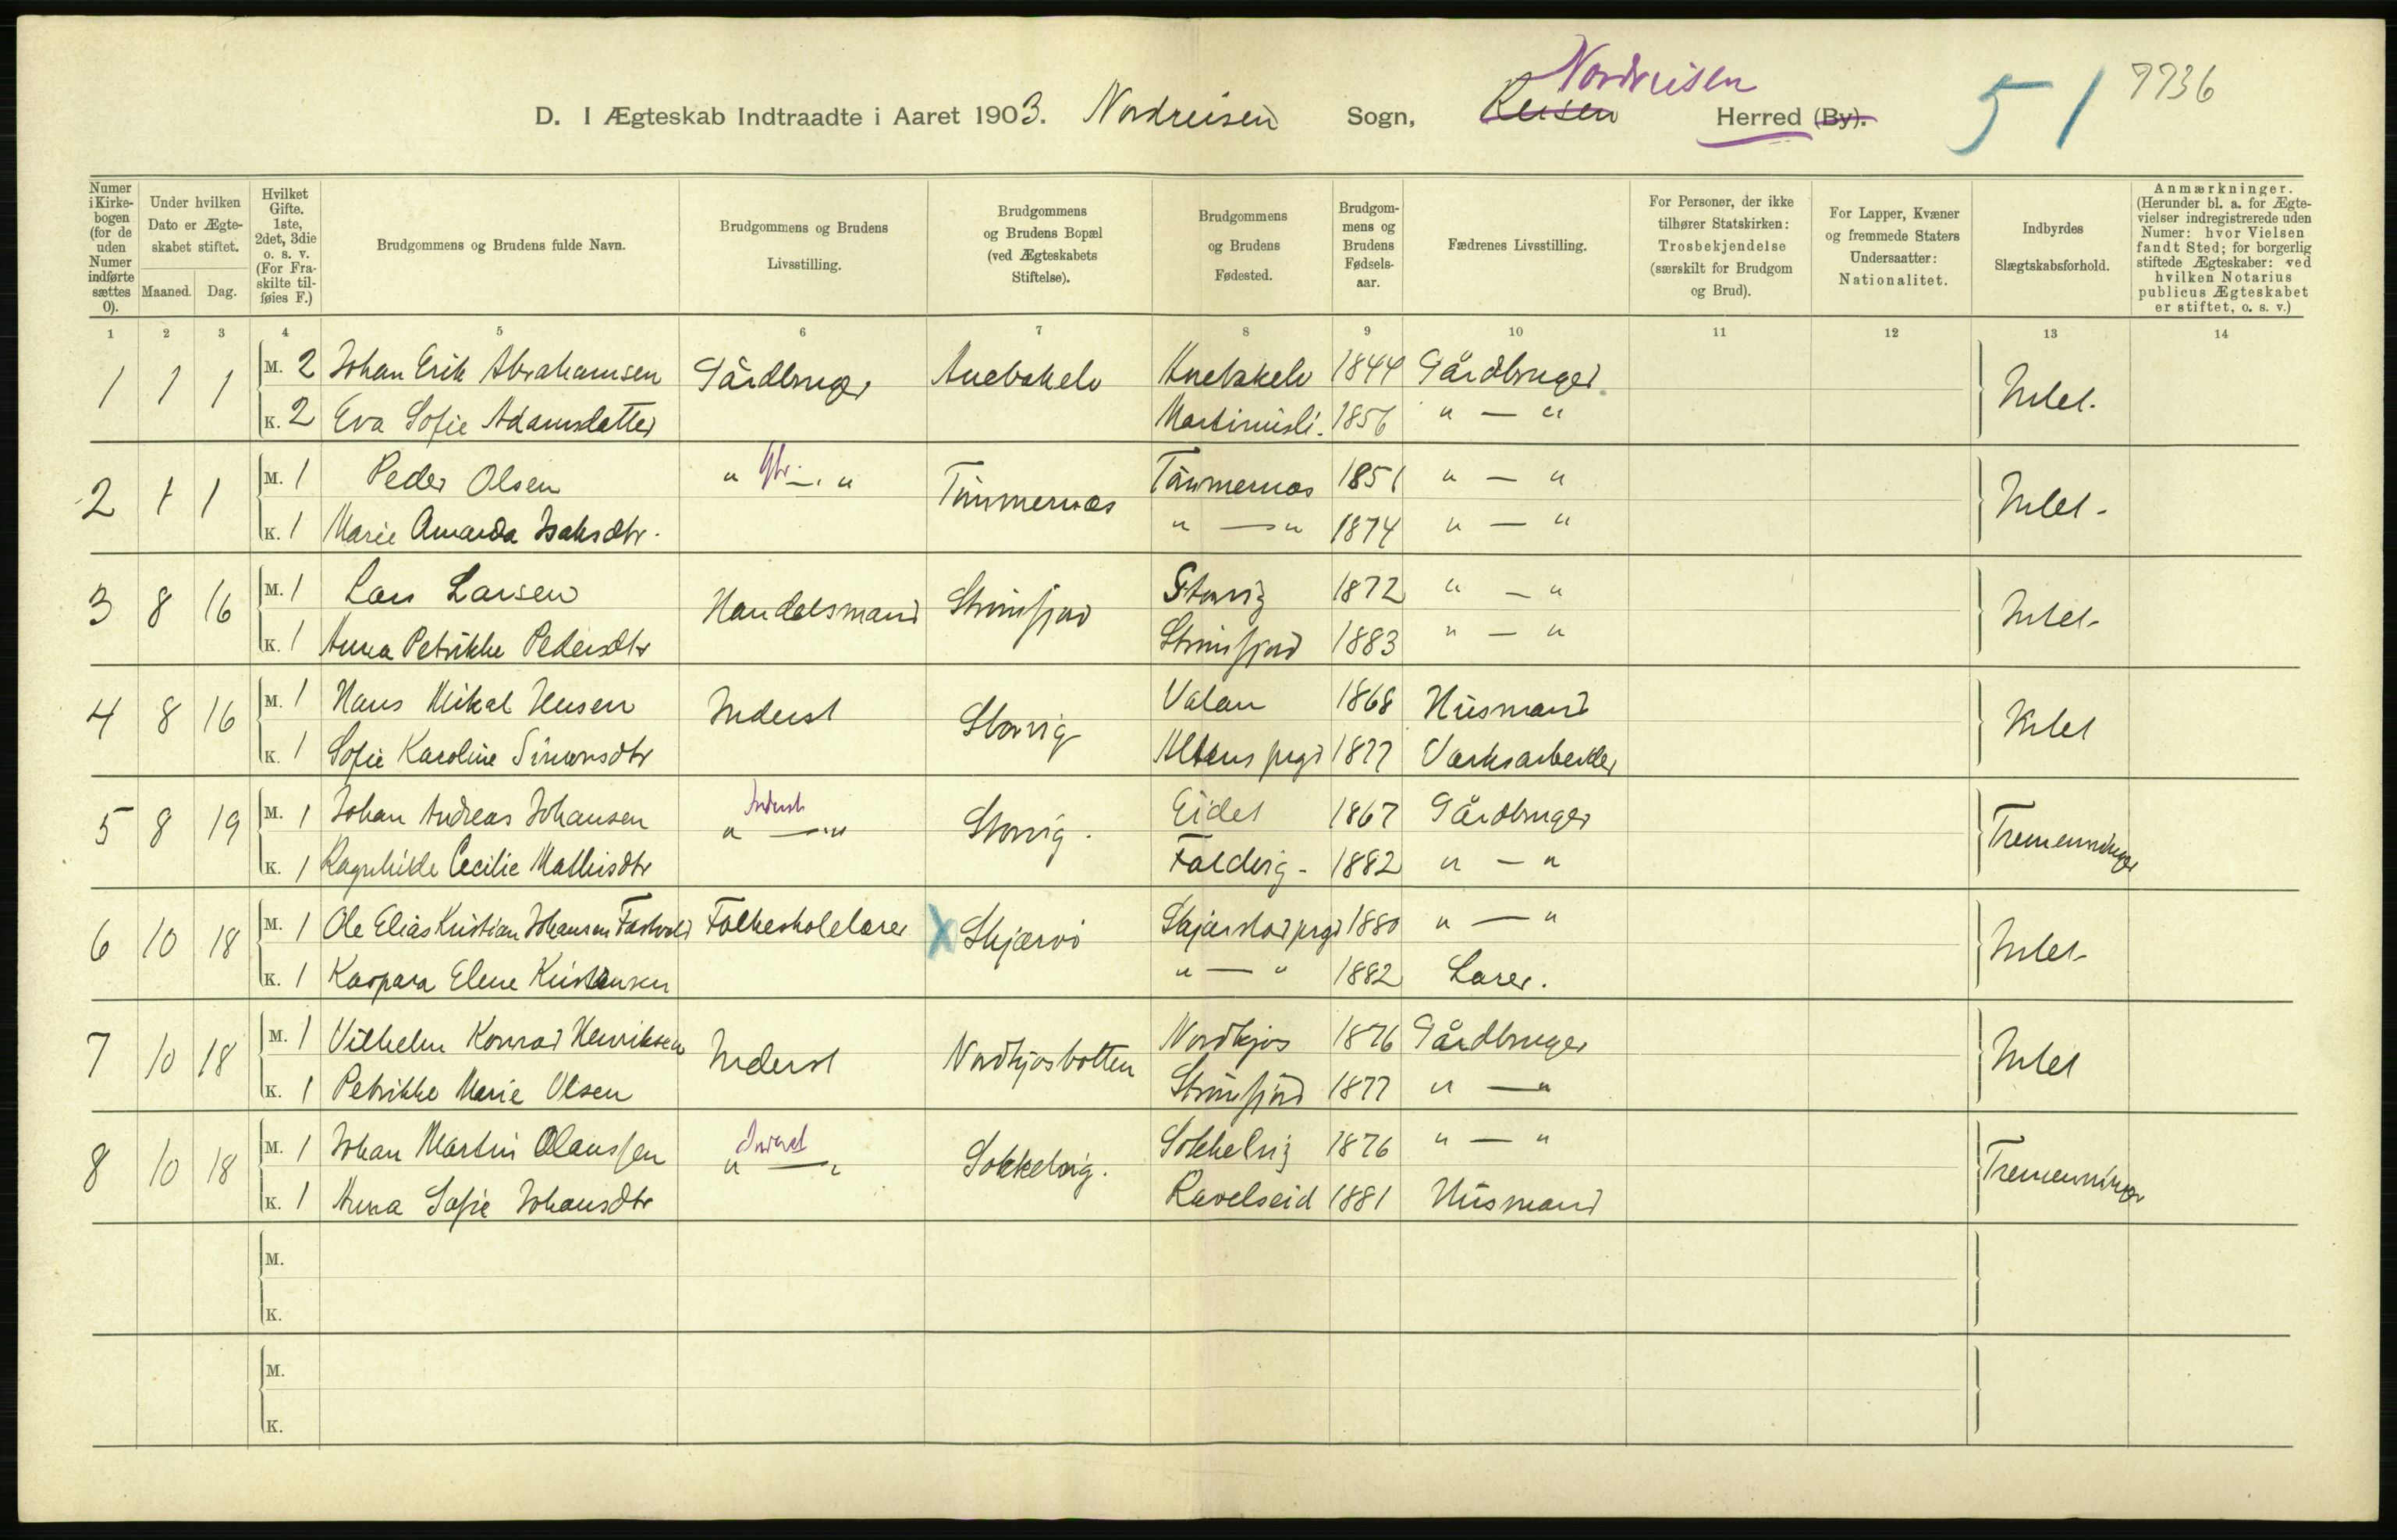 Nordreisen
51 7736
D. I Ægteskab Indtraadte i Aaret 1903. Nordreisen Sogn, Reisen Herred (By).
Numer i Kirkebogen (for de uden Numer indførte sættes 0).
Under hvilken Dato er Ægteskabet stiftet.
Maaned. Dag.
Hvilket Gifte. 1ste, 2det, 3die o. s. v. (For Fraskilte tilføies F.)
Brudgommens og Brudens fulde Navn.
Brudgommens og Brudens Livsstilling.
Brudgommens og Brudens Bopæl (ved Ægteskabets Stiftelse).
Brudgommens og Brudens Fødested.
Brudgommens og Brudens Fødselsaar.
Fædrenes Livsstilling.
For Personer, der ikke tilhører Statskirken: Trosbekjendelse (særskilt for Brudgom og Brud).
For Lapper, Kvæner og fremmede Staters Undersaatter: Nationalitet.
Indbyrdes Slægtskabsforhold.
Anmærkninger. (Herunder bl. a. for Ægtevielser indregistrerede uden Numer: hvor Vielsen fandt Sted; for borgerlig stiftede Ægteskaber: ved hvilken Notarius publicus Ægteskabet er stiftet, o. s. v.)
1 2 3 4 5 6 7 8 9 10 11 12 13 14
1 1 1 M. 2 Johan Erik Abrahamsen Gårdbruger 1844 Gårdbruger Intet.
K. 2 Eva Sofie Adamsdatter 1856 " — "
2 1 1 M. 1 Peder Olsen " Gbr. — " Tömmernæs Tömmernæs 1851 " — " Intet -
K. 1 Marie Amanda Isaksdtr. " — " 1874 " — "
3 8 16 M. 1 Lars Larsen Handelsmand Strømfjord Storvig 1872 " — " Intet-
K. 1 Anna Petrikke Pedersdtr Strømfjord 1883 " — "
4 8 16 M. 1 Hans Mikal Jensen Inderst Storvig Valan 1868 Husmand Intet
K. 1 Sofie Karoline Simonsdtr Altens prgd 1877 Værksarbeider
5 8 19 M. 1 Johan Andreas Johansen Inderst " — " Storvig. Eidet 1867 Gårdbruger Tremenninger
K. 1 Ragnhilde Cecilie Mathisdtr Faldvig - 1882 " — "
6 10 18 M. 1 Ole Elias Kristian Johansen Folkeskolelærer X Skjærvö Skjærstad prgd 1880 " — " Intet-
K. 1 Kaspara Elene Kristensen " — " 1882 Lærer.
7 10 18 M. 1 Vilhelm Konrad Henriksen Inderst Nordkjosbotten Nordkjos 1876 Gårdbruger Intet
K. 1 Petrikke Marie Olsen Strømfjord 1877 " — "
8 10 18 M. 1 Johan Martin Olaussen Inderst " — " Sokkelvig. Sokkelvig 1876 " — " Tremenninger
K. 1 Anna Sofie Johansdtr Ravelseid 1881 Husmand
M.
K.
M.
K.